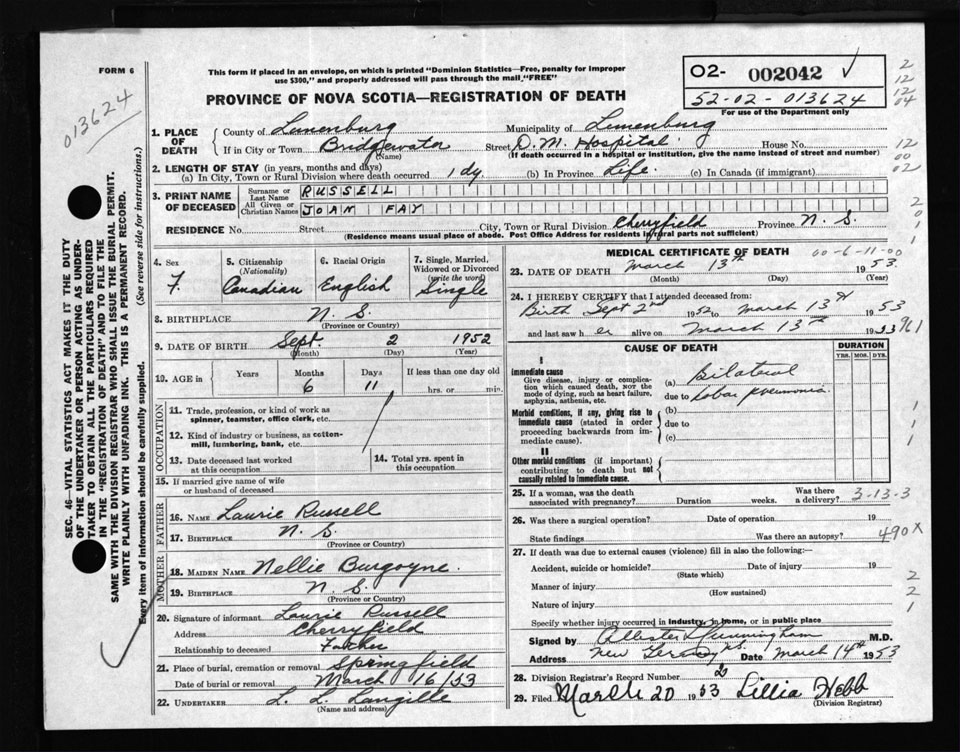 FORM 6
013624
This form if placed in an envelope, on which is printed "Dominion Statistics—Free, penalty for improper
use $300," and properly addressed will pass through the mail "FREE"
PROVINCE OF NOVA SCOTIA—REGISTRATION OF DEATH
02- 002042
52-02-013624
For use of the Department only
2
12
12
04
SEC. 46—VITAL STATISTICS ACT MAKES IT THE DUTY
OF THE UNDERTAKER OR PERSON ACTING AS UNDER-
TAKER TO OBTAIN ALL THE PARTICULARS REQUIRED
IN THE "REGISTRATION OF DEATH" AND TO FILE THE
SAME WITH THE DIVISION REGISTRAR WHO SHALL ISSUE THE BURIAL PERMIT.
WRITE PLAINLY WITH UNFADING INK. THIS IS A PERMANENT RECORD.
Every item of information should be carefully supplied. (See reverse side for instructions.)
1. PLACE OF DEATH County of Lunenburg Municipality of Lunenburg
If in City or Town Bridgewater Street D. M. Hospital House No. 12
(Name) (If death occurred in a hospital or institution, give the name instead of street and number) 00
2. LENGTH OF STAY (in years, months and days) 02
(a) In City, Town or Rural Division where death occurred 1 dy. (b) In Province Life. (c) In Canada (if immigrant)
3. PRINT NAME OF DECEASED Surname or Last Name RUSSELL
All Given or Christian Names JOAN FAY
2
0
1
1
RESIDENCE No. Street City, Town or Rural Division Cherryfield Province N. S.
(Residence means usual place of abode. Post Office Address for residents in rural parts not sufficient)
4. Sex F.
5. Citizenship (Nationality) Canadian
6. Racial Origin English
7. Single, Married, Widowed or Divorced (write the word) Single
8. BIRTHPLACE N. S.
(Province or Country)
9. DATE OF BIRTH Sept. 2 1952
(Month) (Day) (Year)
10. AGE in Years Months Days If less than one day old
6 11 hrs. or min.
OCCUPATION
11. Trade, profession, or kind of work as
spinner, teamster, office clerk, etc.
12. Kind of industry or business, as cotton-
mill, lumbering, bank, etc.
13. Date deceased last worked
at this occupation
14. Total yrs. spent in
this occupation
15. If married give name of wife
or husband of deceased
FATHER
16. NAME Laurie Russell
17. BIRTHPLACE N. S.
(Province or Country)
MOTHER
18. MAIDEN NAME Nellie Burgoyne.
19. BIRTHPLACE N. S.
(Province or Country)
20. Signature of informant Laurie Russell
Address Cherryfield
Relationship to deceased Father
21. Place of burial, cremation or removal Springfield
Date of burial or removal March 16/53
22. UNDERTAKER L. L. Langille
(Name and address)
MEDICAL CERTIFICATE OF DEATH 00-6-11-00
23. DATE OF DEATH March 13th 1953
(Month) (Day) (Year)
24. I HEREBY CERTIFY that I attended deceased from:
Birth Sept 2nd 1952 to March 13th 1953
and last saw her alive on March 13th 1953 961
CAUSE OF DEATH DURATION
YRS. MOS. DYS.
I
Immediate cause
Give disease, injury or complica-
tion which caused death, NOT the
mode of dying, such as heart failure,
asphyxia, asthenia, etc.
(a) Bilateral
due to lobar pneumonia
Morbid conditions, if any, giving rise to
immediate cause (stated in order
proceeding backwards from im-
mediate cause).
(b)
due to
(c)
1
1
II
Other morbid conditions (if important)
contributing to death but not
causally related to immediate cause.
25. If a woman, was the death
associated with pregnancy? Duration weeks. Was there a delivery? 3-13-3
26. Was there a surgical operation? Date of operation 19
State findings Was there an autopsy? 490X
27. If death was due to external causes (violence) fill in also the following:—
Accident, suicide or homicide? Date of injury 19
(State which)
Manner of injury
(How sustained)
Nature of injury
2
2
1
Specify whether injury occurred in industry, in home, or in public place
Signed by Cunningham M.D.
Address New Germany N.S. Date March 14th 1953
28. Division Registrar's Record Number 20
29. Filed March 20 1953 Lillia Hebb
(Division Registrar)